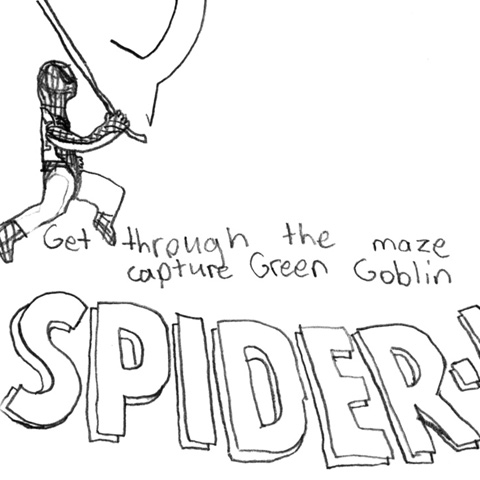 Get through the maze
capture Green Goblin
SPIDER-